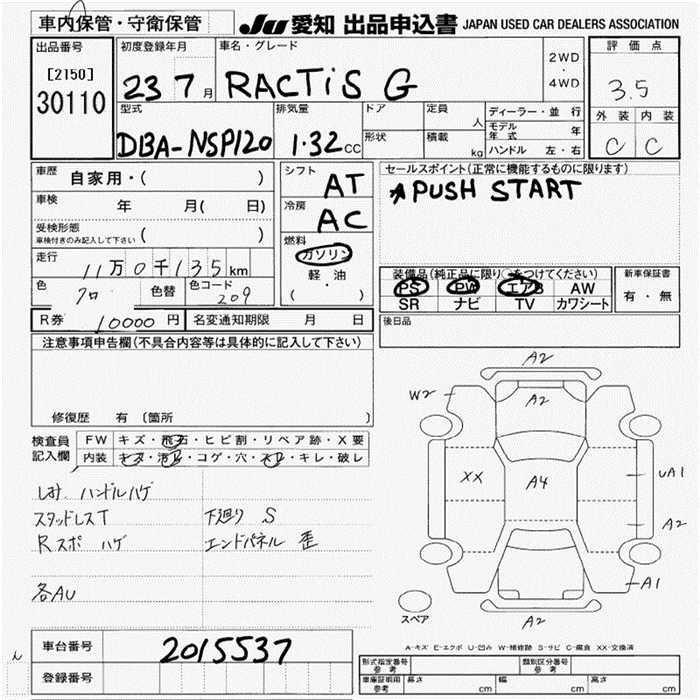 車内保管・守衛保管
JU 愛知 出品申込書 JAPAN USED CAR DEALERS ASSOCIATION
出品番号 初度登録年月 車名・グレード 評価点
[2150] 2WD・4WD
30110 23 7月 RACTiS G 3.5
型式 排気量 ドア 定員 人 ディーラー・並行 外装 内装
モデル年式 年
DBA-NSP120 1.32CC 形状 積載 kg ハンドル 左・右 C C
車歴 自家用・( ) シフト AT セールスポイント(正常に機能するものに限ります)
車検 年 月( 日) 冷房 AC ☆PUSH START
受検形態 ( )
車検付きのみ記入して下さい
燃料 ガソリン
走行 11万0千135km 軽油 装備品(純正品に限り○をつけてください) 新車保証書
色 クロ 色替 色コード 209 ( ・ ) PS PW エアB AW 有・無
SR ナビ TV カワシート
R券 10000円 名変通知期限 月 日 後日品
注意事項申告欄(不具合内容等は具体的に記入して下さい)
修復歴 有 〔箇所
検査員記入欄 FW キズ・飛石・ヒビ割・リペア跡・X要
内装 キズ・汚れ・コゲ・穴・スレ・キレ・破レ
ハンドルハゲ
スタッドレスT 下廻り S
Rスポ ハゲ エンドパネル 歪
各AU
A2
W2 A2
XX A4 UA1
A2
A1
スペア A2
A-キズ E-エクボ U-凹み W-補修跡 S-サビ C-腐食 XX-交換済
車台番号 2015537
登録番号
形式指定番号 参考 類別区分番号 参考
車庫証明用 参考 長さ cm 幅 cm 高さ cm